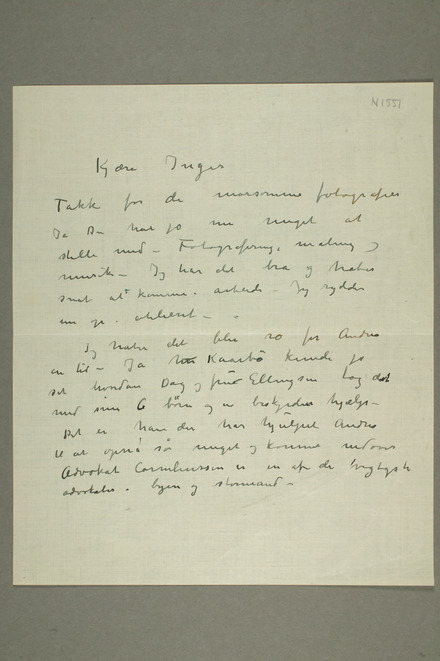 N 1551
Kjære Inger
Takk for de morsomme fotografier
Ja Du har jo nu meget at
stelle med – Fotografering, maling og
musik – Jeg har det bra og haaber
snart at komme i arbeide – Jeg rydder
om i atelieret –
Jeg haaber det blir ro for Andrea
en tid – Ja Kaarbø kunde jo
set hvordan Dag og fru Ellingsen tog det
med sine 6 børn og en beskjeden hjælp –
Det er han der har hjulpet Andrea
til at opnå så meget og komme
Advokat Corneliussen er en af de dygtigste
advokater i byen og stormand –